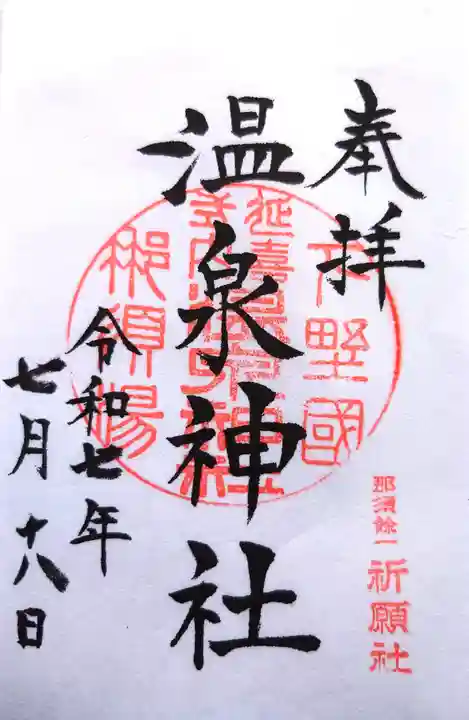 奉拝
下野國
延喜
式内
那須湯
温泉神社
令和七年
七月十八日
那須餘一
祈願社